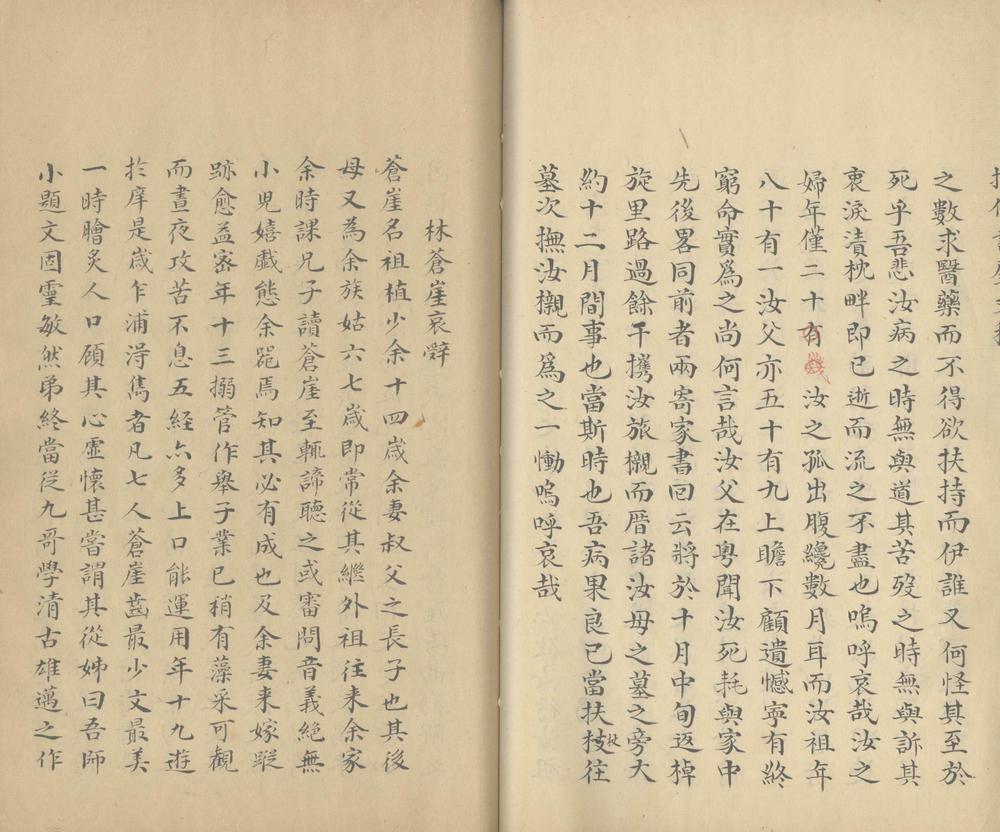 之數求醫藥而不得欲扶持而伊誰又何怪其至於
死乎吾悲汝病之時無與道其苦歿之時無與訴其
衷淚漬枕畔即已逝而流之不盡也嗚呼哀哉汝之
婦年僅二十有幾汝之孤出腹纔數月耳而汝祖年
八十有一汝父亦五十有九上瞻下顧遺憾寧有終
窮命實爲之尚何言哉汝父在粵聞汝死耗與家中
先後畧同前者兩寄家書曰云將於十月中旬返棹
旋里路過餘干攜汝旅櫬而厝諸汝母之墓之旁大
約十二月間事也當斯時也吾病果良已當扶技杖往
墓次撫汝櫬而爲之一慟嗚呼哀哉
林蒼崖哀辤
蒼崖名祖植少余十四歲余妻叔父之長子也其後
母又為余族姑六七歲即常從其繼外祖往来余家
余時課兄子讀蒼崖至輒諦聽之或審問音義絕無
小兒嬉戲態余詫焉知其必有成也及余妻来嫁蹤
跡愈益密年十三搦管作舉子業已稍有藻采可觀
而晝夜攻苦不息五經亦多上口能運用年十九遊
扵庠是歲乍浦淂雋者凡七人蒼崖齒最少文最美
一時膾炙人口顧其心虛懷甚嘗謂其從姊曰吾師
小題文固靈敏然弟終當從九哥學清古雄邁之作